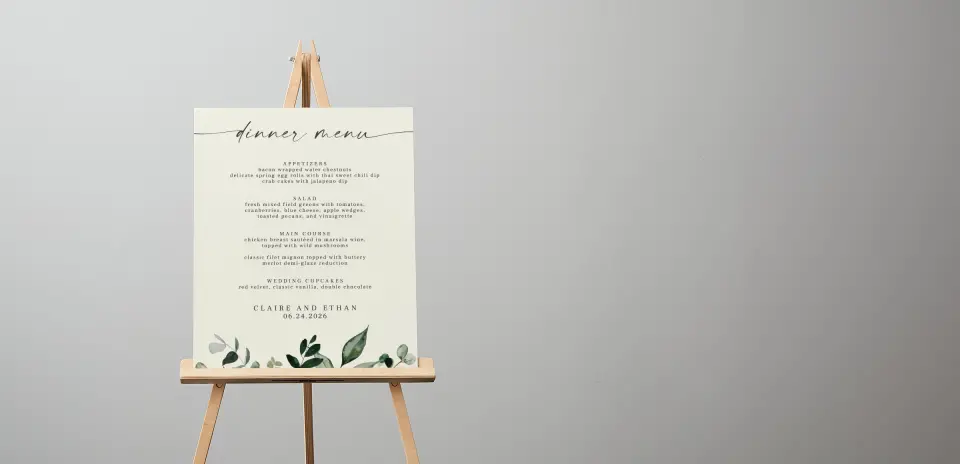 dinner menu
APPETIZERS
bacon wrapped water chestnuts
delicate spring egg rolls with thai sweet chili dip
crab cakes with jalapeno dip
SALAD
fresh mixed field greens with tomatoes,
cranberries, blue cheese, apple wedges,
toasted pecans, and vinaigrette
MAIN COURSE
chicken breast sautéed in marsala wine,
topped with wild mushrooms
classic filet mignon topped with buttery
merlot demi-glass reduction
WEDDING CUPCAKES
red velvet, classic vanilla, double chocolate
CLAIRE AND ETHAN
06.24.2026